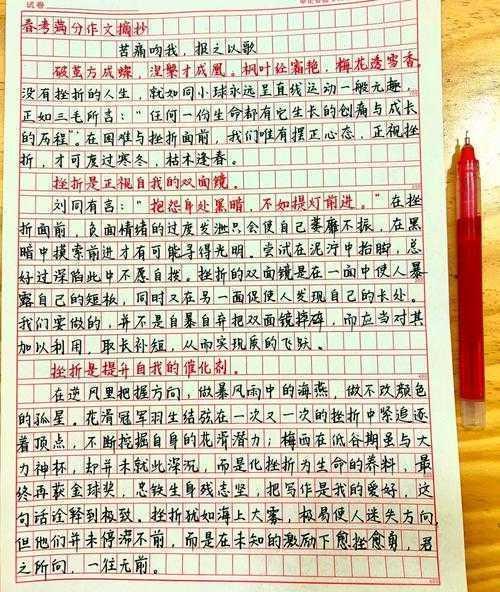 试卷
春考满分作文摘抄
苦痛吻我,报之以歌
破茧方成蝶,涅槃才成凰。枫叶经霜艳,梅花透雪香。
没有挫折的人生,就如同小球永远呈直线运动一般无趣。
正如三毛所言:“任何一份生命都有它生长的创痛与成长
的历程”。在困难与挫折面前,我们唯有摆正心态,正视挫
折,才可度过寒冬,枯木逢春。
挫折是正视自我的双面镜。
刘同有言:“抱怨身处黑暗,不如提灯前进。”在挫
折面前,负面情绪的过度发泄只会使自己萎靡不振,在黑
暗中摸索前进才有可能寻得光明。尝试在泥泞中抬脚,总
好过深陷此中不愿自拔。挫折的双面镜是在一面中使人暴
露自己的短板,同时又在另一面促使人发现自己的长处。
我们要做的,并不是自暴自弃把双面镜摔碎,而应当对其
加以利用,取长补短,从而实现质的飞跃。
挫折是提升自我的催化剂。
在逆风里把握方向,做暴风雨中的海燕,做不改颜色
的孤星。花滑冠军羽生结弦在一次又一次的挫折中紧追逐
着顶点,不断挖掘自身的花滑潜力;梅西在低谷期虽与大
力神杯,却并未就此深沉,而是化挫折为生命的养料,最
终再获金球奖,忠铁生身残志坚,把写作是我的爱好,这
句话诠释到极致。挫折犹如海上大雾,极易使人迷失方向,
但他们并未停滞不前,而是在未知的激励下愈挫愈勇,君
之所向,一往无前。